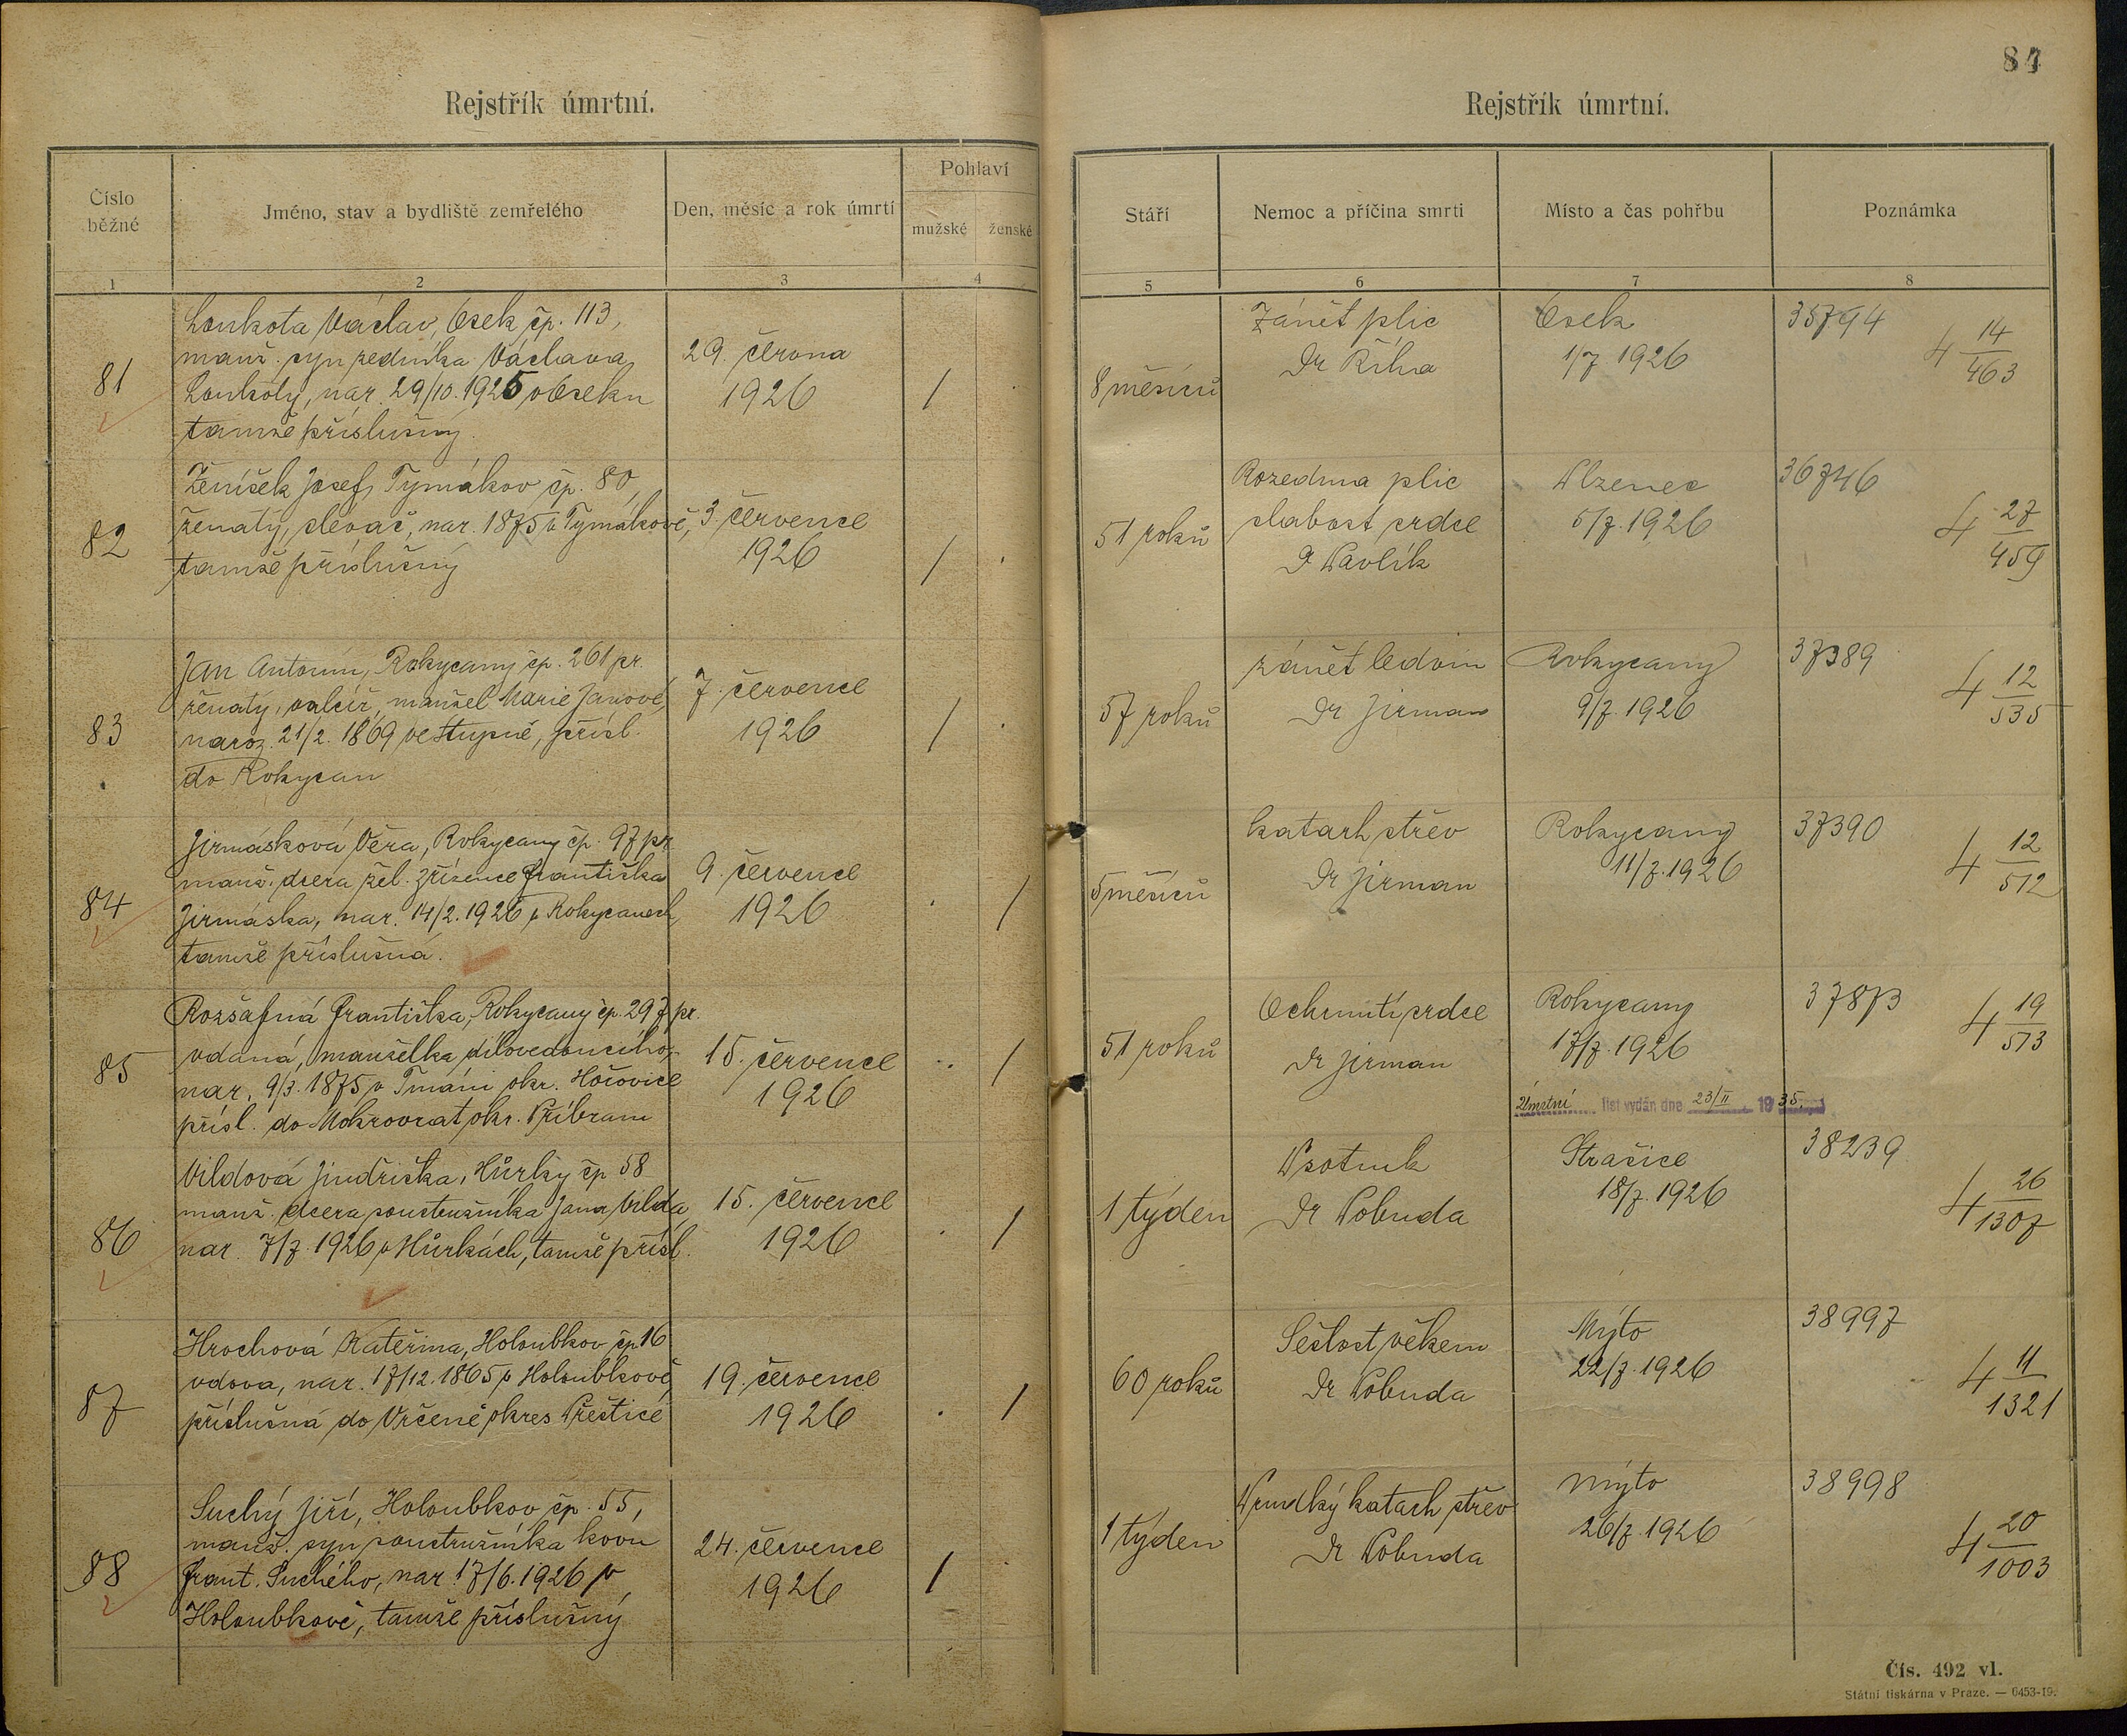 87
Rejstřík úmrtní.
Rejstřík úmrtní.
Číslo běžné
Jméno, stav a bydliště zemřelého
Den, měsíc a rok úmrtí
Pohlaví
mužské
ženské
Stáří
Nemoc a příčina smrti
Místo a čas pohřbu
Poznámka
1 2 3 4 5 6 7 8
81
Loukota Václav, Osek čp. 113,
manž. syn zedníka Václava
Loukoty, nar. 29/10. 1925 v Oseku
tamže příslušný.
29. června
1926
/
8 měsíců
Zánět plic
Dr Říha
Osek
1/7 1926
35794
4 14/463
82
Ženíšek Josef, Tymákov čp. 80,
ženatý, slévač, nar. 1875 v Tymákově,
tamže příslušný
3. července
1926
/
51 roků
Rozedma plic
slabost srdce
Dr Pavlík
Plzenec
5/7. 1926
36746
4 27/459
83
Jan Antonín, Rokycany čp. 261 pr.
ženatý, valcíř, manžel Marie Janové,
naroz. 21/2. 1869 ve Stupně, přísl.
do Rokycan
7. července
1926
/
57 roků
zánět ledvin
Dr Jirman
Rokycany
9/7. 1926
37389
4 12/535
84
Jirmásková Věra, Rokycany čp. 97 pr
manž. dcera žel. zřízence Františka
Jirmáska, nar. 14/2. 1926 v Rokycanech,
tamže příslušná.
9. července
1926
/
5 měsíců
katarh střev
Dr Jirman
Rokycany
11/7. 1926
37390
4 12/512
85
Rozšafná Františka, Rokycany čp. 297 pr.
vdaná, manželka dílovedoucího,
nar. 9/3. 1875 v Tmáni okr. Hořovice
přísl. do Mokrovrat okr. Příbram
15. července
1926
/
51 roků
Ochrnutí srdce
Dr Jirman
Rokycany
17/7. 1926
Úmrtní list vydán dne 23/II 1935.
37873
4 19/573
86
Vildová Jindřiška, Hůrky čp 58
manž. dcera soustružníka Jana Vilda
nar. 7/7. 1926 v Hůrkách, tamže přísl.
15. července
1926
/
1 týden
Psotník
Dr Pobuda
Strašice
18/7. 1926
38239
4 26/1307
87
Hrochová Kateřina, Holoubkov čp 16
vdova, nar. 17/12. 1865 v Holoubkově,
příslušná do Vrčeně okres Přeštice
19. července
1926
/
60 roků
Sešlost věkem
Dr Pobuda
Mýto
22/7. 1926
38997
4 11/1321
88
Suchý Jiří, Holoubkov čp. 55,
manž. syn soustružníka kovu
Frant. Suchého, nar. 17/6. 1926 v
Holoubkově, tamže příslušný
24. července
1926
/
1 týden
Prudký katarh střev
Dr Pobuda
Mýto
26/7. 1926
38998
4 20/1003
Čís. 492 vl.
Státní tiskárna v Praze. — 6453-19.